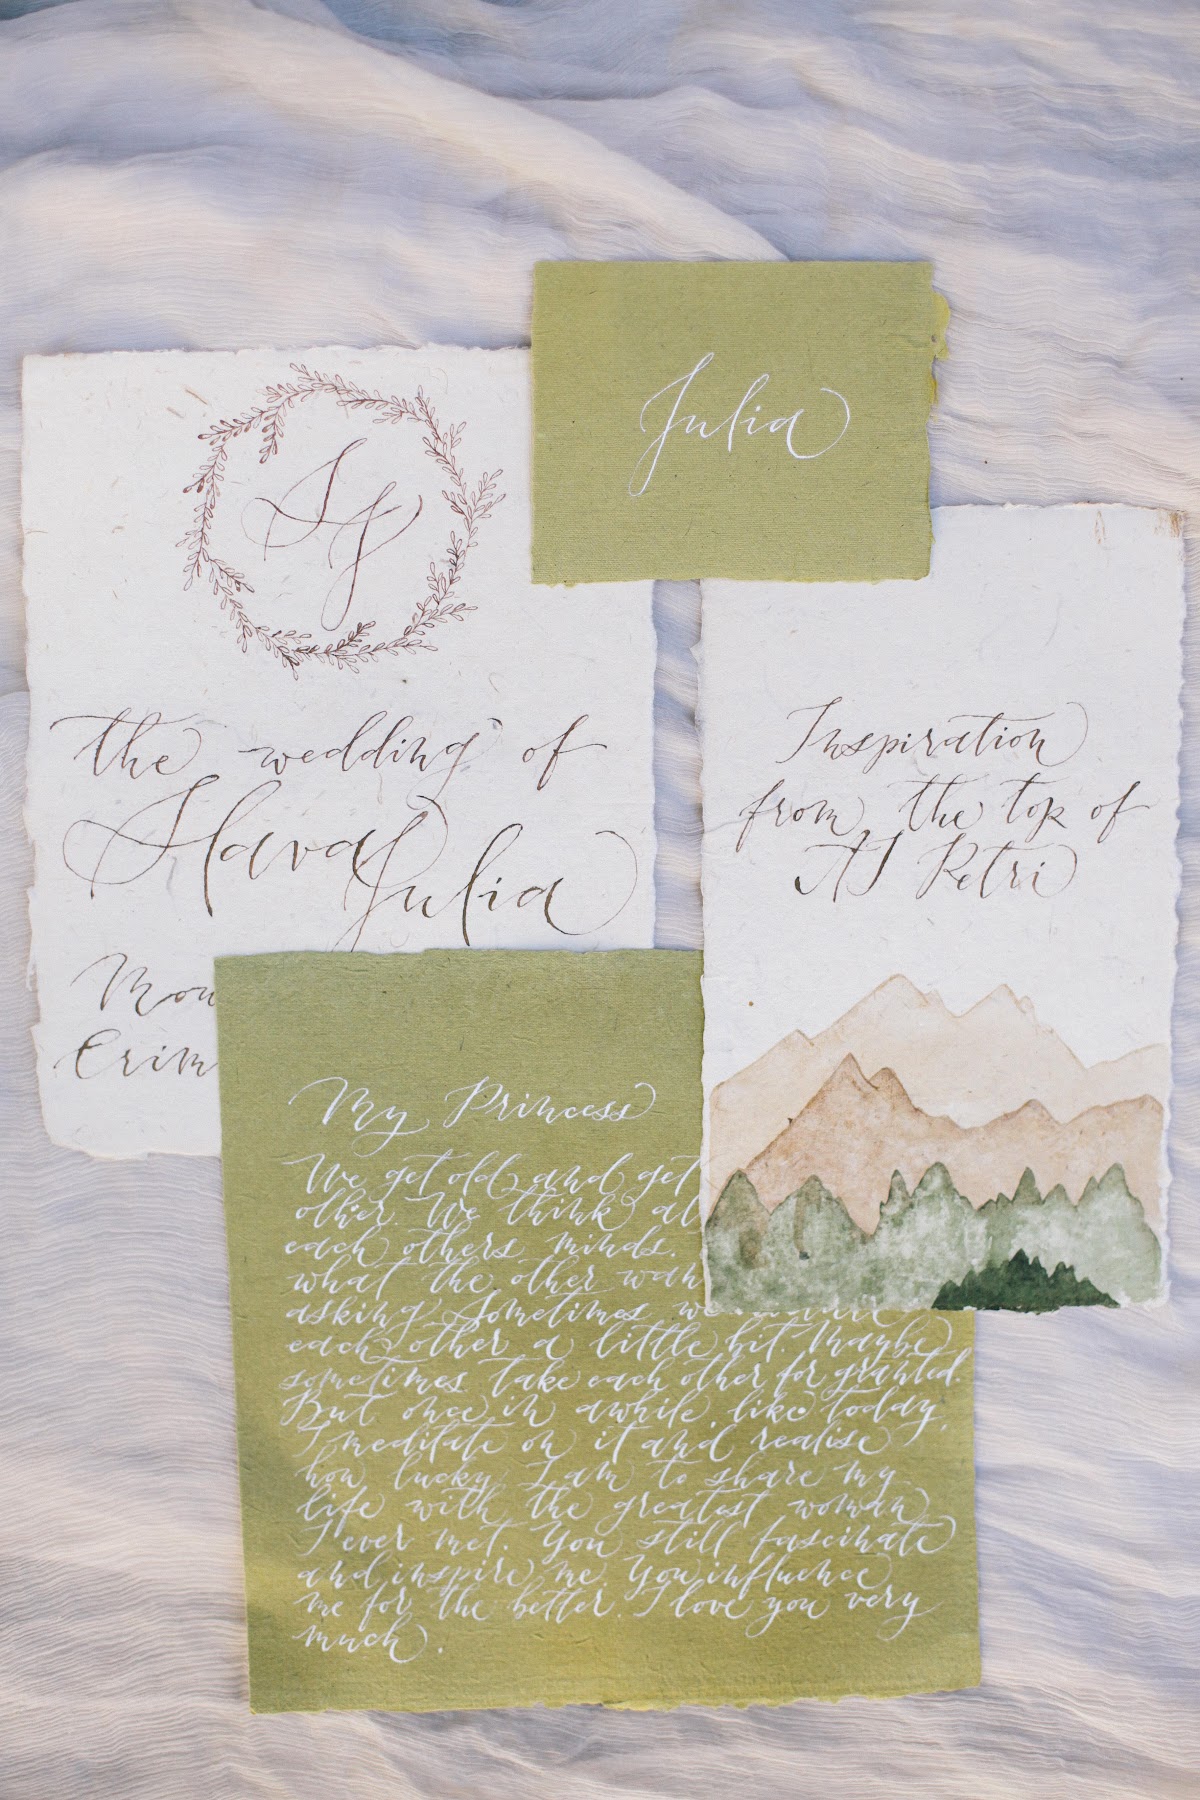 Julia
SJ
the wedding of
Slava
Julia
Mou
Crim
Inspiration
from the top of
AJ Petri
My Princess
We get old and get
other. We think al
each others minds.
what the other wan
asking. Sometimes we
each other a little bit. Maybe
sometimes take each other for granted.
But once in awhile, like today,
I meditate on it and realise
how lucky I am to share my
life with the greatest woman
I ever met. You still fascinate
and inspire me. You influence
me for the better. I love you very
much.